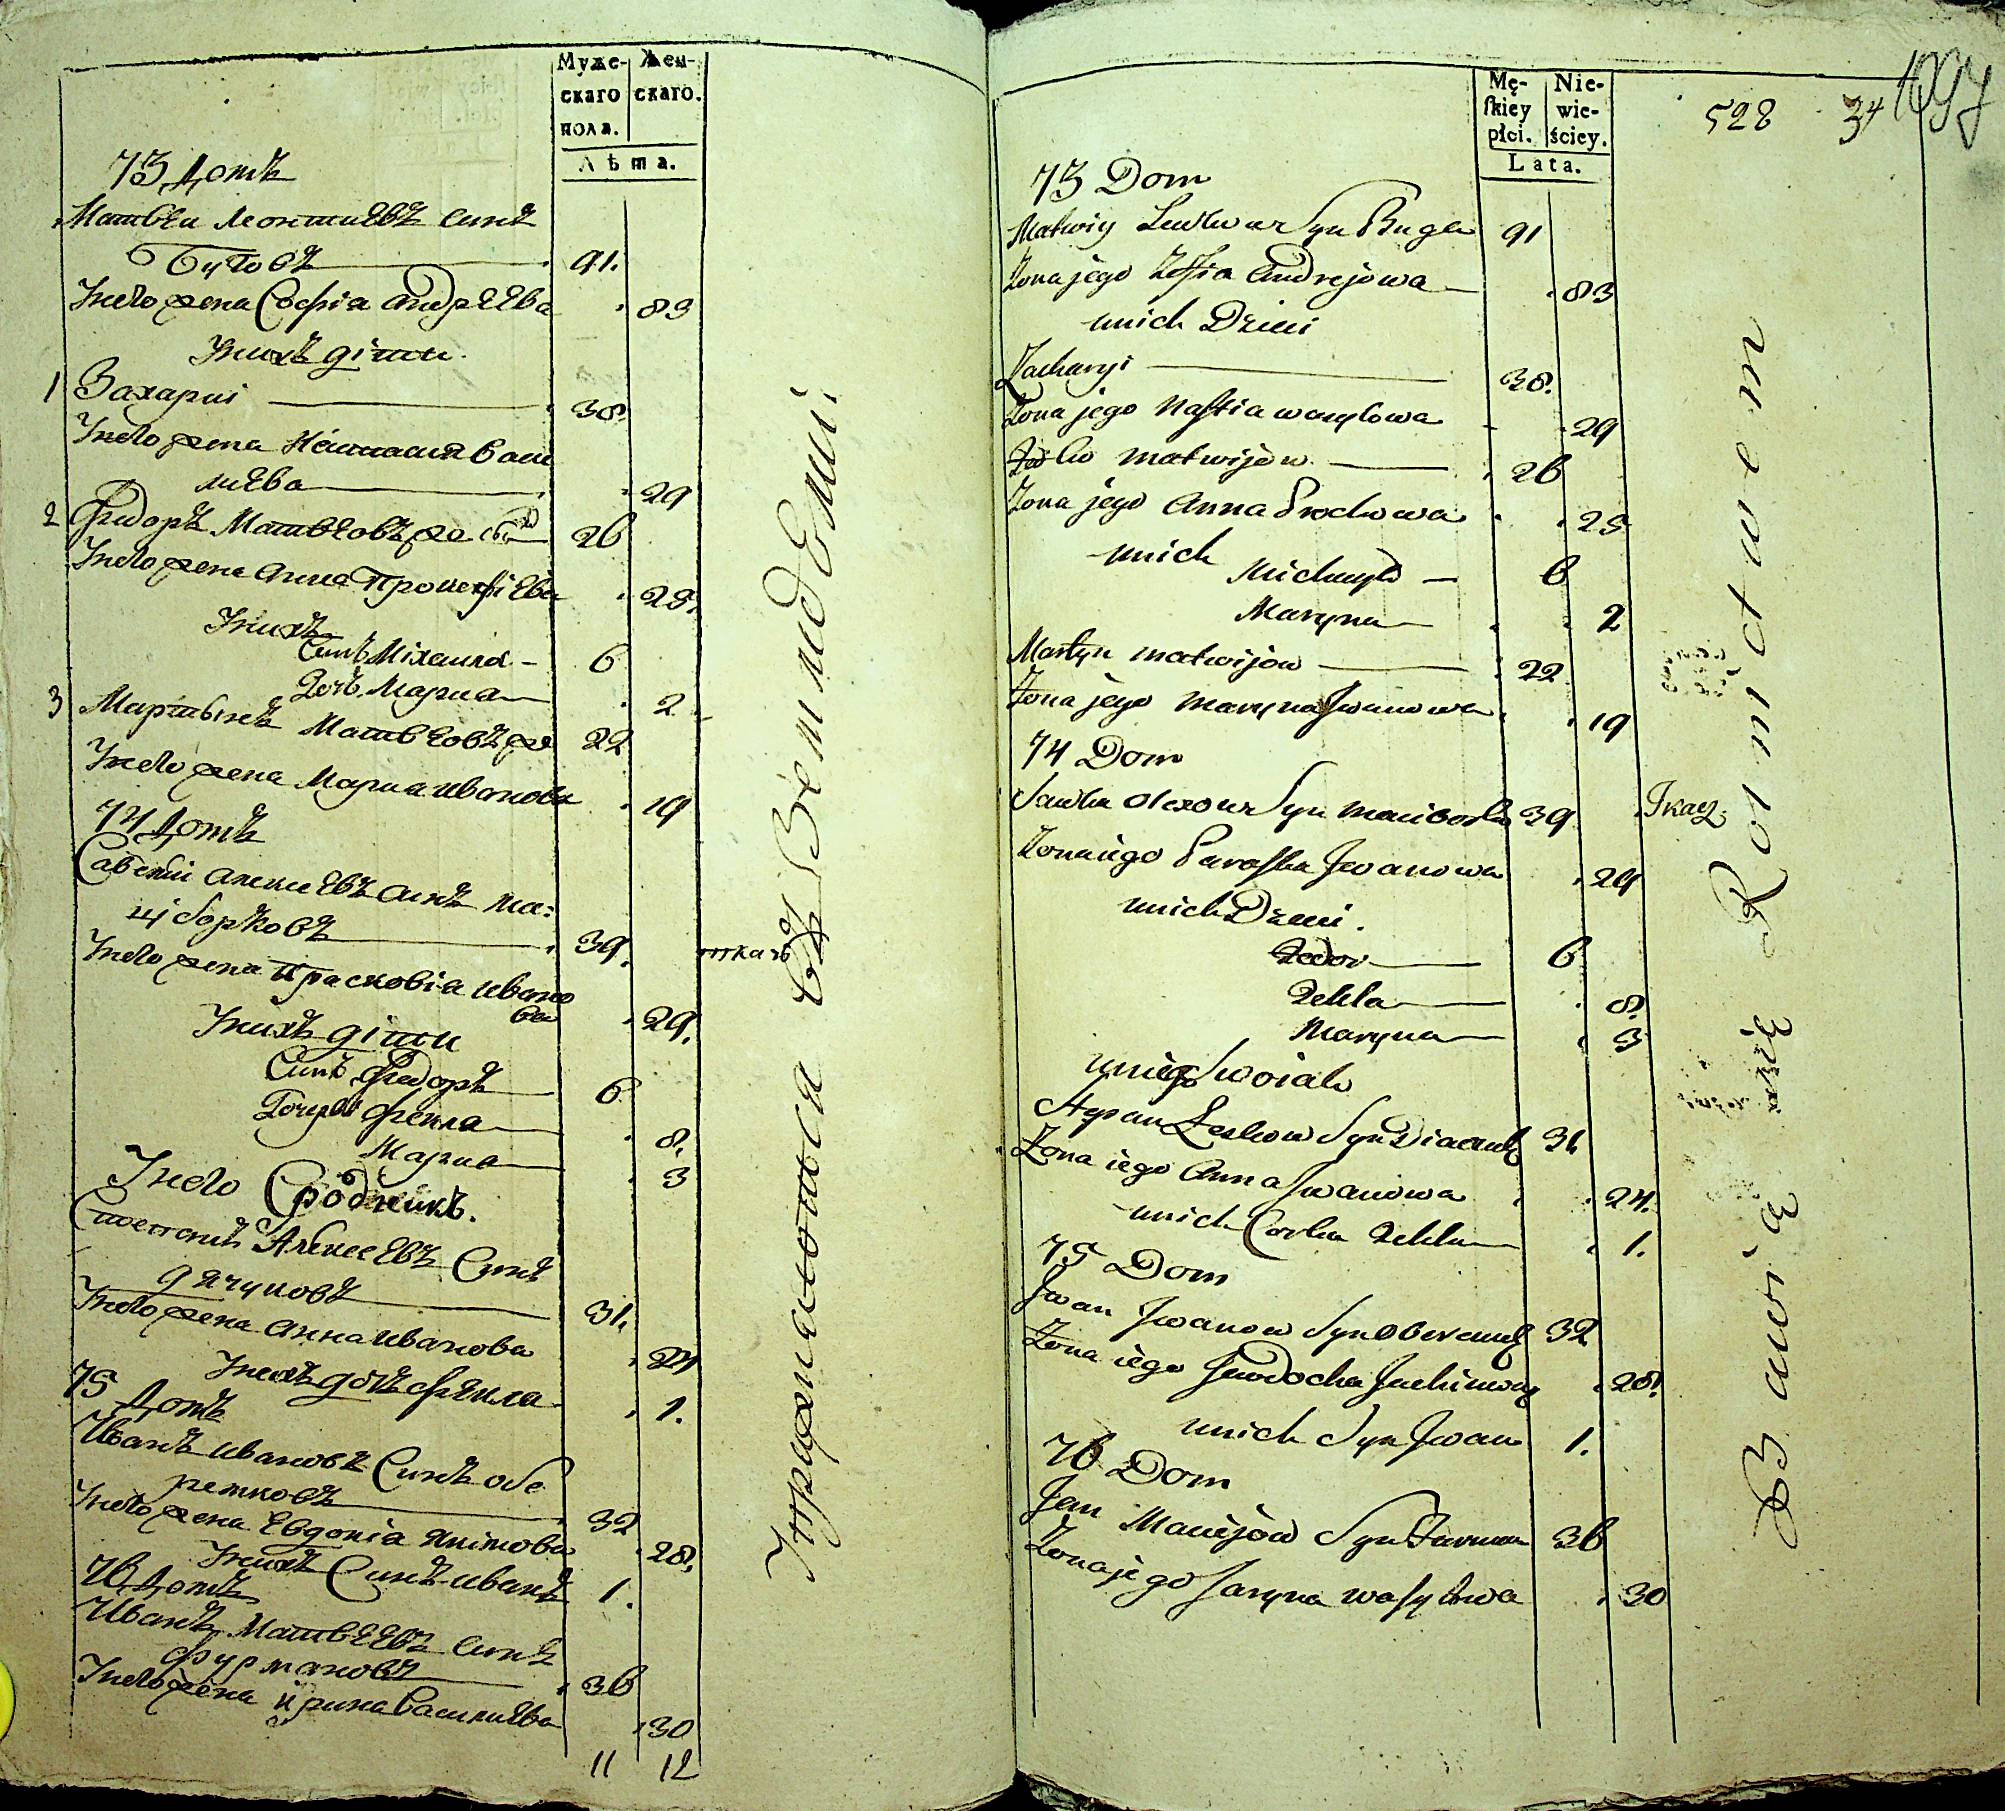 Муже-
скаго
пола.
Жен-
скаго.
Лѣта.
73 Домъ
Матвѣи Леонтиевъ синъ
Буговъ 91.
Унего жена Софiа андреева 83
Унихъ дiти
1 Захарiи 38
Унего жена Настасия Васи
лиева 29
2 Фидоръ Матвеовъ же 26
Унего жена анна Прокофiева 25.
Унихъ
Синъ Михаила 6
Дочь Мариа 2
3 Мартынъ Матвеовъ же 22
Унего жена Мариа иванова 19
74 Домъ
Савелiи алексиевъ синъ Ма:
цiборковъ 39. ткачъ
Унего жена Прасковiа ивано
ва 29.
Унихъ дiти
Синъ Фидоръ 6
Дочери Фекла 8.
Мариа 3
Унего Сродникъ.
Степанъ Алексеевъ Синъ
дячуковъ 31.
Унего жена анна иванова 24
Унихъ дочъ Фекла 1.
75 Домъ
Иванъ ивановъ Синъ обе
ремковъ 32
Унего жена Евдокiа якимова 28.
Унихъ Синъ иванъ 1.
76 Домъ
Иванъ Матвеевъ синъ
фурмановъ 36
Унего жена ирина Василиева 30
11 12
Упражняются въ Земледелии.
Mę-
skiey
płci.
Nie-
wie-
ściey.
Lata.
528 34 1097
73 Dom
Matwiy Syn Buga 91
Zona jego Zofia Andrejowa 83
unich Dzieci
Zacharyi 38.
Zona jego Nastia wasylowa 29
Fedko matwijow 26
Zona jego Anna Prockowa 25
unich Michayło 6
Maryna 2
Martyn matwijow 22
Zona jego Maryna Jwanowa 19
74 Dom
Sawka Olexow Syn maciborka 39 Tkacz
Zona iego Paraska Jwanowa 29
unich Dzieci.
Fedor 6
Tekla 8.
Maryna 3
uniego Swoiak
Stepan Leskow Syn Diaczuk 31
Zona iego Anna Jwanowa 24.
unich Corka Tekla 1.
75 Dom
Jwan Jwanow Syn Oberemok 32
Zona iego Jewdocha Jachimowa 28.
unich Syn Jwan 1.
76 Dom
Jan Maciejow Syn Furman 36
Zona jego Jaryna wasylowa 30
Bawią się Rolnictwem